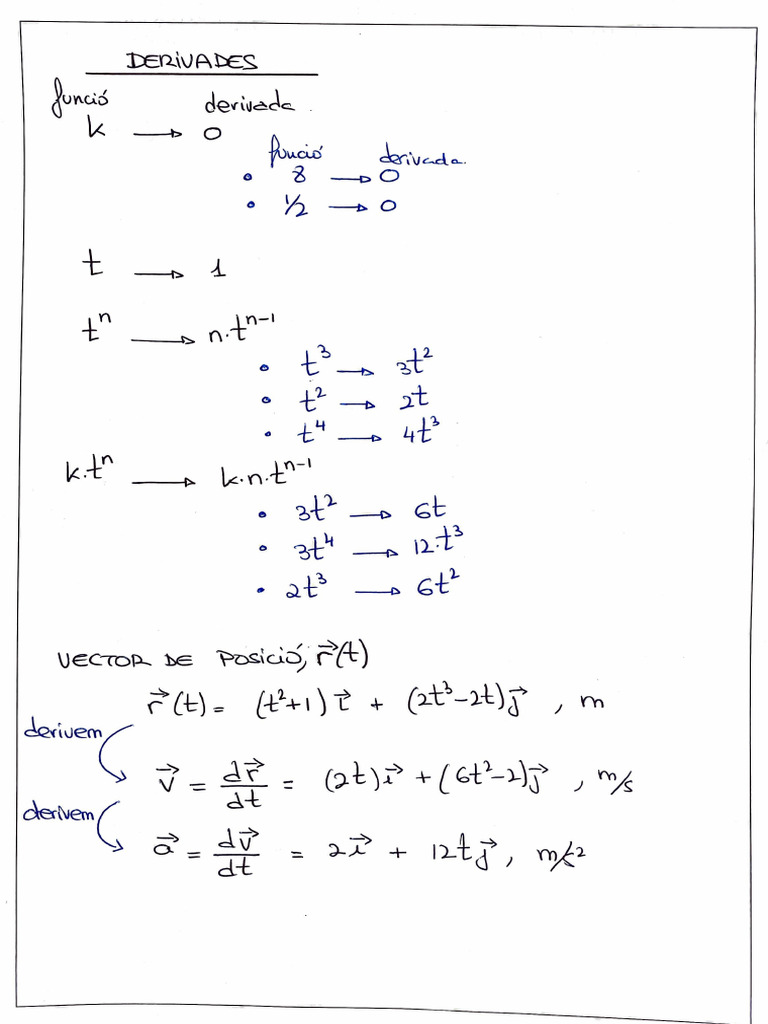 DERIVADES
funció derivada.
k → 0
funció derivada.
• 8 → 0
• 1/2 → 0
t → 1
tⁿ → n·tⁿ⁻¹
• t³ → 3t²
• t² → 2t
• t⁴ → 4t³
k·tⁿ → k·n·tⁿ⁻¹
• 3t² → 6t
• 3t⁴ → 12·t³
• 2t³ → 6t²
VECTOR DE POSICIÓ, r⃗(t)
r⃗(t) = (t²+1) i⃗ + (2t³-2t) j⃗ , m
derivem
v⃗ = dr⃗/dt = (2t) i⃗ + (6t²-2) j⃗ , m/s
derivem
a⃗ = dv⃗/dt = 2i⃗ + 12t j⃗ , m/s²